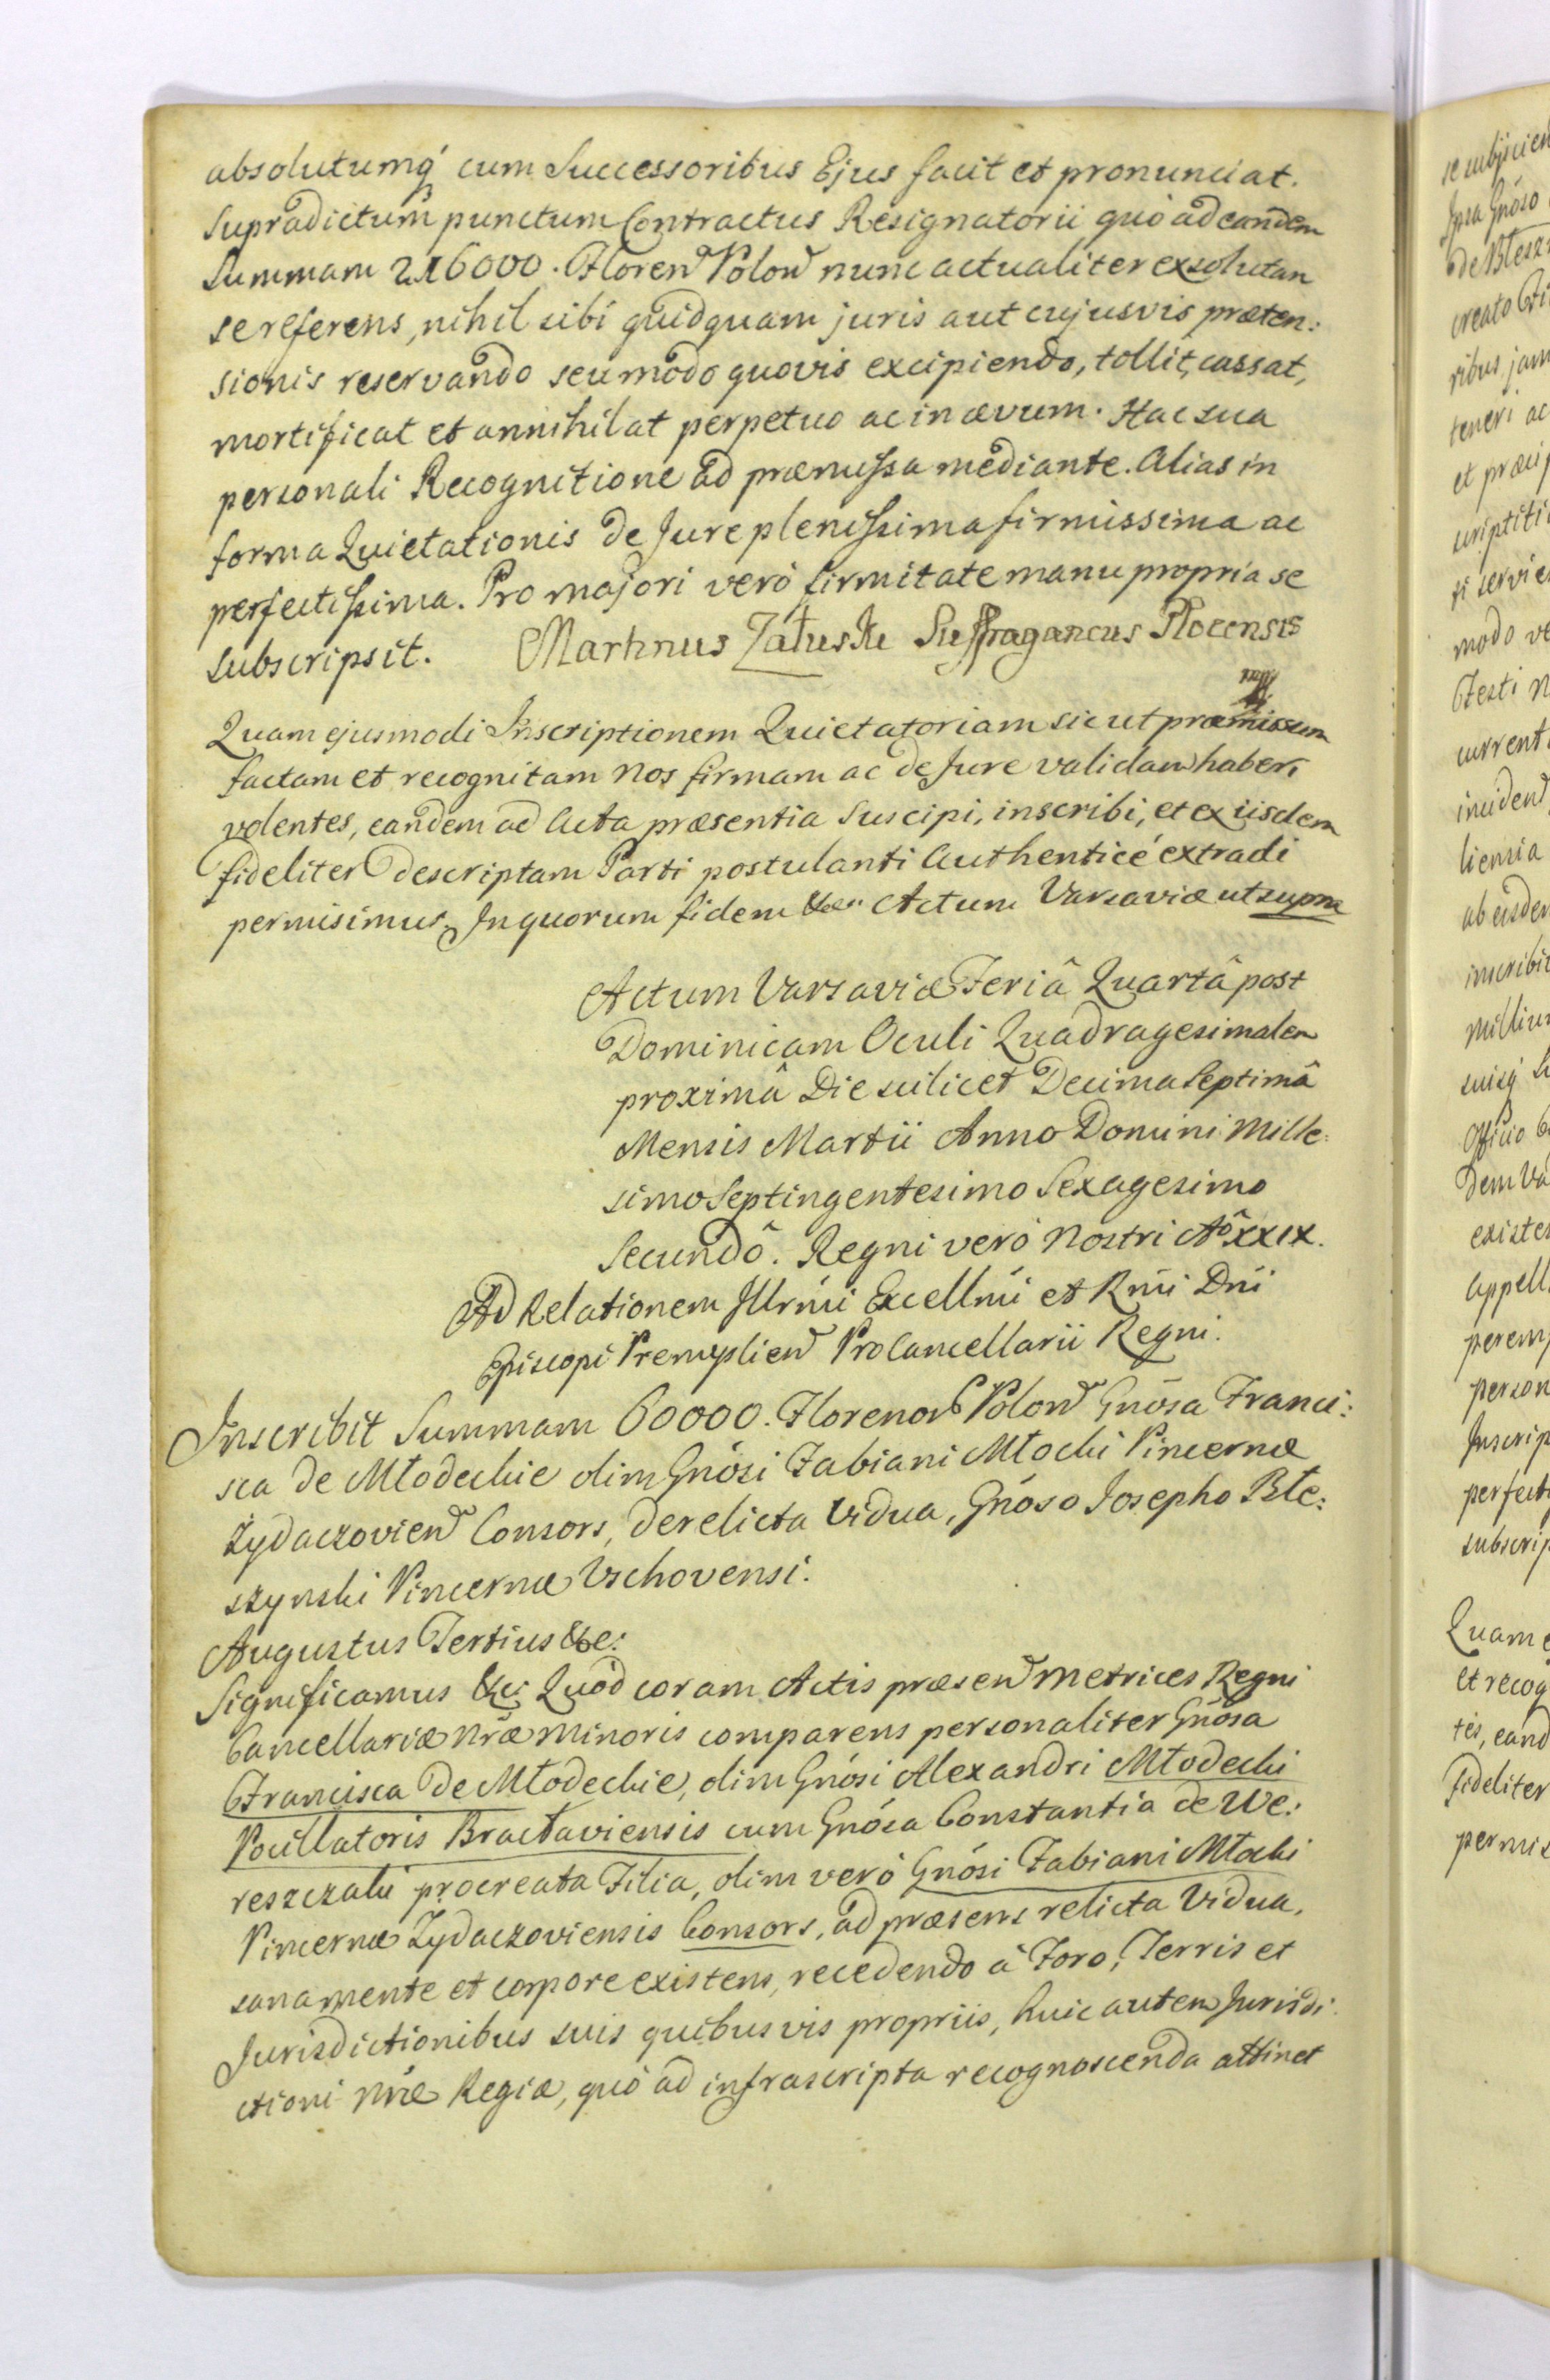 absolutumq́ cum Successoribus Ejus facit et pronunciat.
Supradictum punctum Contractus Resignatorii quò ad eandem
Summam 216000. Floren Polon nunc actualiter exsolutam
se referens, nihil sibi quidquam juris aut cujusvis præten:
sionis reservando seu modo quovis excipiendo, tollit, cassat,
mortificat et annihilat perpetuo ac in ævum. Hac sua
personali Recognitione ad præmissa mediante. Alias in
forma Quietationis de Jure plenissima firmissima ac
perfectissima. Pro majori verò firmitate manu propria se
subscripsit. Martinus Załuski Suffraganeus Plocensis
mpp
Quam ejusmodi Inscriptionem Quietatoriam sicut præmissum
factam et recognitam Nos firmam ac de Jure validam haberi
volentes, eandem ad Acta præsentia Suscipi, inscribi, et ex iisdem
fideliter descriptam Parti postulanti Authenticè extradi
permisimus. In quorum fidem &c. Actum Varsaviæ ut supra
Actum Varsaviæ Feriâ Quartâ post
Dominicam Oculi Quadragesimalem
proximâ Die scilicet Decima Septimâ
Mensis Martii Anno Domini Mille:
simo Septingentesimo Sexagesimo
Secundô. Regni verò Nostri Aô XXIX.
Ad Relationem Illrm̃i Excellm̃i et Rm̃i Dn̄i
Episcopi Premyslien ProCancellarii Regni.
Inscribit Summam 60000. Florenor Polon Gnōsa Franci:
sca de Młodeckie olim Gnōsi Fabiani Młocki Pincernæ
Zydaczovien Consors, derelicta Vidua, Gnōso Josepho Błe:
szynski Pincernæ Vschovensi.
Augustus Tertius &c:
Significamus &c: Quòd coram Actis præsen Metrices Regni
Cancellariæ Nr̃æ Minoris comparens personaliter Gnōsa
Francisca de Młodeckie, olim Gnōsi Alexandri Młodecki
Pocillatoris Bracłaviensis cum Gnōsa Constantia de We:
reszczaki procreata Filia, olim verò Gnōsi Fabiani Młocki
Pincernæ Zydaczoviensis Consors, ad præsens relicta Vidua,
sana mente et corpore existens, recedendo à Foro, Terris et
Jurisdictionibus suis quibusvis propriis, huic autem Jurisdi:
ctioni Nr̃æ Regiæ, quò ad infrascripta recognoscenda attinet